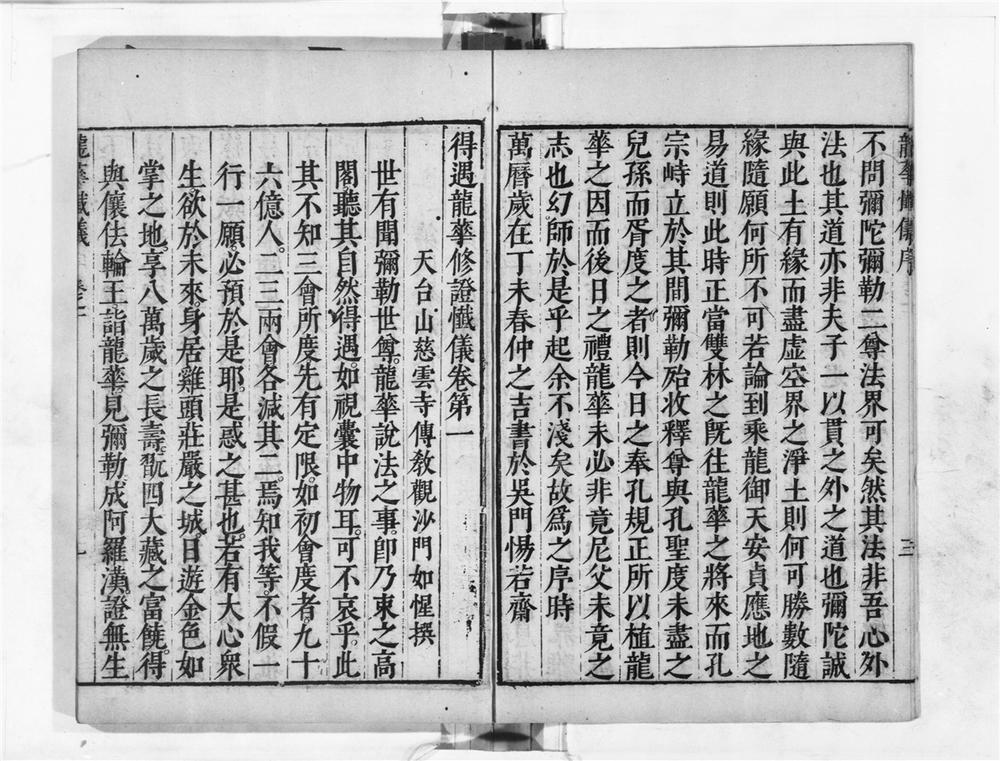 龍華懺儀序
三
不問彌陀彌勒二尊法界可矣然其法非吾心外
法也其道亦非夫子一以貫之外之道也彌陀誠
與此土有緣而盡虛空界之淨土則何可勝數隨
緣隨願何所不可若論到乘龍御天安貞應地之
易道則此時正當雙林之旣往龍華之將來而孔
宗峙立於其間彌勒殆收釋尊與孔聖度未盡之
兒孫而胥度之者則今日之奉孔規正所以植龍
華之因而後日之禮龍華未必非竟尼父未竟之
志也幻師於是乎起余不淺矣故爲之序時
萬曆歲在丁未春仲之吉書於吳門惕若齋
得遇龍華修證懺儀卷第一
天台山慈雲寺傳敎觀沙門如惺撰
世有聞彌勒世尊龍華說法之事卽乃束之高
閣聽其自然得遇如視囊中物耳可不哀乎此
其不知三會所度先有定限如初會度者九十
六億人二三兩會各減其二焉知我等不假一
行一願必預於是耶是惑之甚也若有大心衆
生欲於未來身居雞頭莊嚴之城日遊金色如
掌之地享八萬歲之長壽翫四大藏之富饒得
與儴佉輪王詣龍華見彌勒成阿羅漢證無生
龍華懺儀